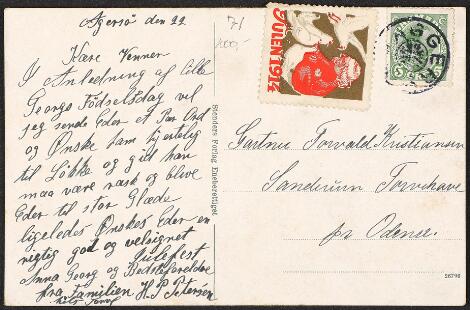 Agersø den 22
Kære Venner
I Anledning af lille
Georgs Födselsdag vil
jeg sende Eder et Par Ord
og Ønske ham hjertelig
til Løkke og gid han
maa være rask og blive
Eder til stor Glæde
ligeledes Ønskes Eder en
rigtig god og velsignet
Julefest
Anna Georg og Bedsteforældre
fra Familien H.P. Petersen
71
100,-
JULEN 1914
5
Stenders Forlag Eneberettiget
Gartner Torvald Kristiansen
Sanderum Torvehave
pr Odense.
28796